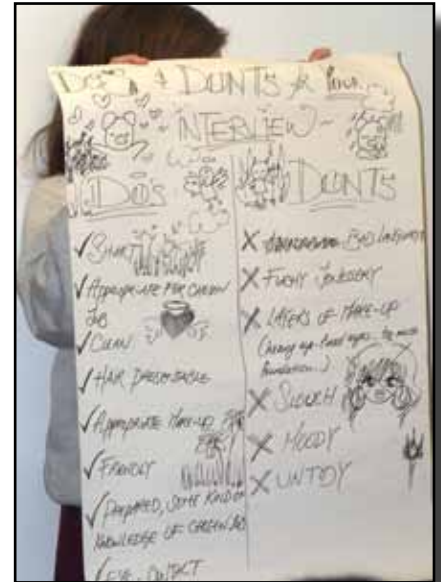 DO'S & DONTS for Your
INTERVIEW~
DO'S
✓ SMART
✓ APPROPRIATE FOR CHOSEN
JOB
✓ CLEAN
✓ HAIR PRESENTABLE
✓ APPROPRIATE MAKE-UP
✓ FRIENDLY
✓ PREPARED, SOME KIND OF
KNOWLEDGE OF CHOSEN JOB
✓ EYE CONTACT
DONTS
X BAD LANGUAGE
X JEWELLERY
X LAYERS OF MAKE-UP
(heavy eyes too much
foundation...)
X SLOUCH
X MOODY
X UNTIDY